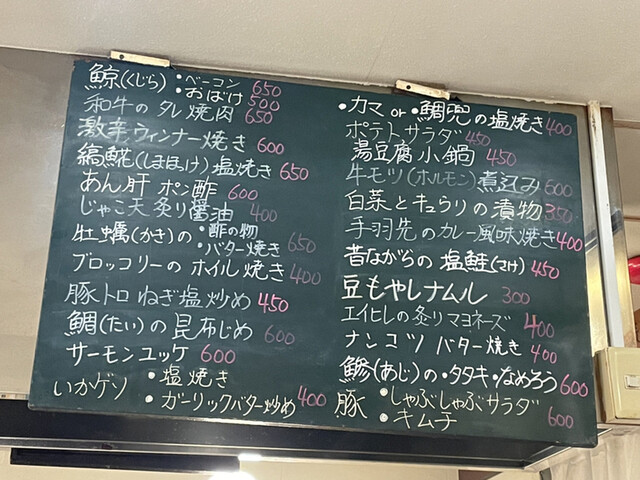 鯨(くじら)・ベーコン 650
・おばけ 500
和牛のタレ焼肉 650
激辛ウィンナー焼き 600
縞𩸽(しまほっけ)塩焼き 650
あん肝ポン酢 600
じゃこ天炙り醤油 400
牡蠣(かき)の・酢の物
・バター焼き 650
ブロッコリーのホイル焼き 400
豚トロねぎ塩炒め 450
鯛(たい)の昆布じめ 600
サーモンユッケ 600
いかゲソ・塩焼き
・ガーリックバター炒め 400
・カマ or・鯛兜の塩焼き 400
ポテトサラダ 450
湯豆腐小鍋 450
牛モツ(ホルモン)煮込み 600
白菜とキュウリの漬物 350
手羽先のカレー風味焼き 400
昔ながらの塩鮭(さけ) 450
豆もやしナムル 300
エイヒレの炙りマヨネーズ 400
ナンコツバター焼き 400
鯵(あじ)の・タタキ・なめろう 600
豚・しゃぶしゃぶサラダ
・キムチ 600